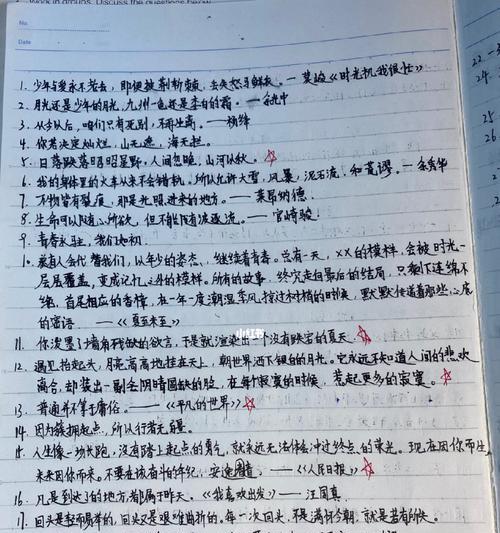 Work in groups. Discuss the questions below
No.
Date
1. 少年与爱永不老去,即便披荆斩棘,去失怒马鲜衣。— 莫峻《时光机我很忙》
2. 月光还是少年的月光,九州一色还是李白的霜。— 余光中
3. 从今以后,咱们只有死别,不再生离。— 杨绛
4. 你若决定灿烂,山无遮,海无拦。
5. 日落跌落昭昭星野,人间忽晚,山河以秋。
6. 我的身体里的火车从来不会错轨。所以允许大雪,风暴,泥石流,和荒谬。— 余秀华
7. 万物皆有裂痕,那是光照进来的地方。— 莱昂纳德
8. 生命可以随心所欲,但不能随波逐流。— 宫崎骏
9. 青春永驻,我们如初
10. 总有人会代替我们,以年少的姿态,继续着青春。总有一天,××的模样,会被时光一
层层覆盖,变成记忆之外的模样。所有的故事,终究走向最后的结局,只剩下连绵不
绝、首尾相应的香樟,在一年一度潮湿季风找过村梢的时候,默默传送着那些心底
的密语 ——《夏至未至》
小红书
11. 你泼墨了墙角残缺的欲言,于是就渲染出一个没有跌宕的夏天。
12. 遇见抬起头,月亮高高地挂在天上,朝世界洒下银白的月光。它永远不知道人间的悲欢
离合,却装出一副会阴晴圆缺的脸,在每个寂寞的时候,惹起更多的寂寞。
13. 普通并不等于庸俗。——《平凡的世界》
14. 因为簇拥起点,所以行者无疆。
15. 人生像一场长跑,没有踏上起点的勇气,就永远无法体会冲过终点的荣光。现在因你而生,
未来因你而来。不要在该奋斗的年纪,安逸。——《人民日报》
16. 凡是到达了的地方,都属于昨天。《我喜欢出发》— 汪国真
17. 回头是轻而易举的,回头又是艰难曲折的。每一次回头,不是满怀今朝,就是若有所失。
22. 一
24.
25
26